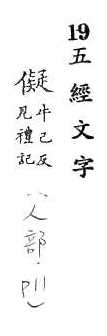 19五經文字
儗牛己反
見禮記
(人部·P11)